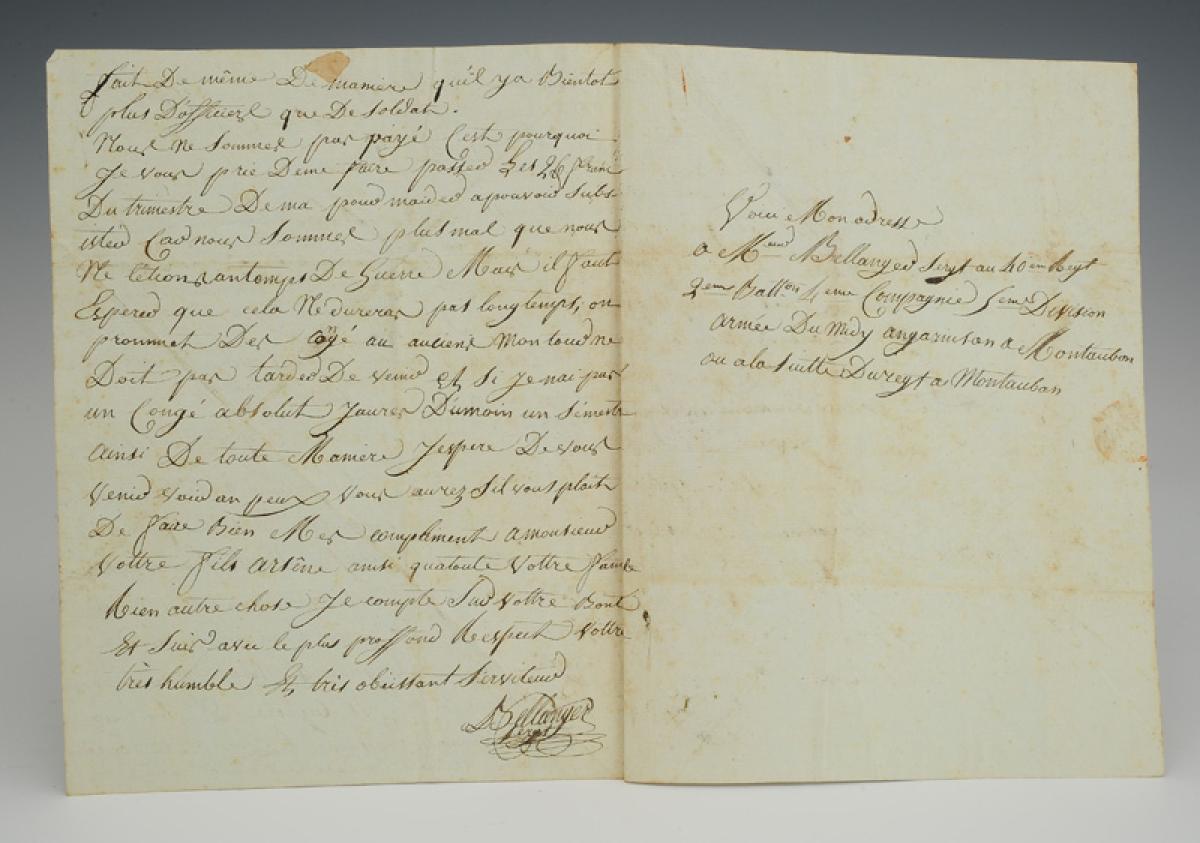 fait De même De maniere quil ya Bientot
plus D'officiers que De Soldat.
Nous Ne Sommes pas payé C'est pourquoi
Je vous prie Deme faire passer Les 26 franc
Du trimestre Dema pour maider apouvoir Subs-
ister Car nous Sommes plus mal que nous
Ne letions antemps De Guerre Mais il faut
Esperer que cela Ne dureras pas longtemps, on
prommet Des Congé au anciens Mon tour ne
Doit pas tarder De venir et Si Je nai pas
un Congé absolut Jaures Dumoin un Semestre
ainsi De toute Maniere Jespere De vous
venir voir an peux vous aurez Sil vous plait
De faire Bien Mes compliment amonsieur
Vottre fils arsêne ainsi quatoute Vottre famile
Rien autre chose Je compte Sur vottre Bont
Et Suis avec le plus proffond Respect Vottre
très humble Et très obeissant Serviteur
Bellanger
Sergt
Voici Mon adresse
a Mr Bellanger Sergt au 40 em Regt
2eme Batlon 4eme Compagnie 5eme Division
armée Du Midy angarnison a Montauban
ou ala Suitte Du regt a Montauban